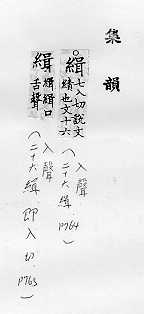 集韻
緝 七入切說文績也文十六 入聲（二十六緝 P764）
緝 緝緝口舌聲 入聲（二十六緝 即入切 P763）